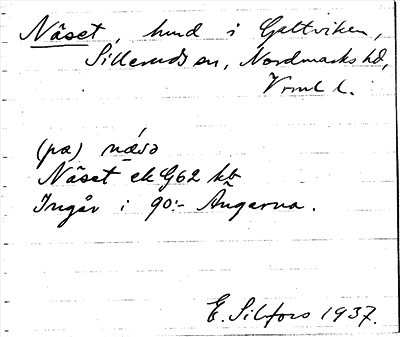 Näset, hmd i Gettviken,
Silleruds sn, Nordmarks hd,
Vrml l.
(pœ) nǽsə
Näset ek G62 kb
Ingår i 90:- Ängarna.
E. Silfors 1937.